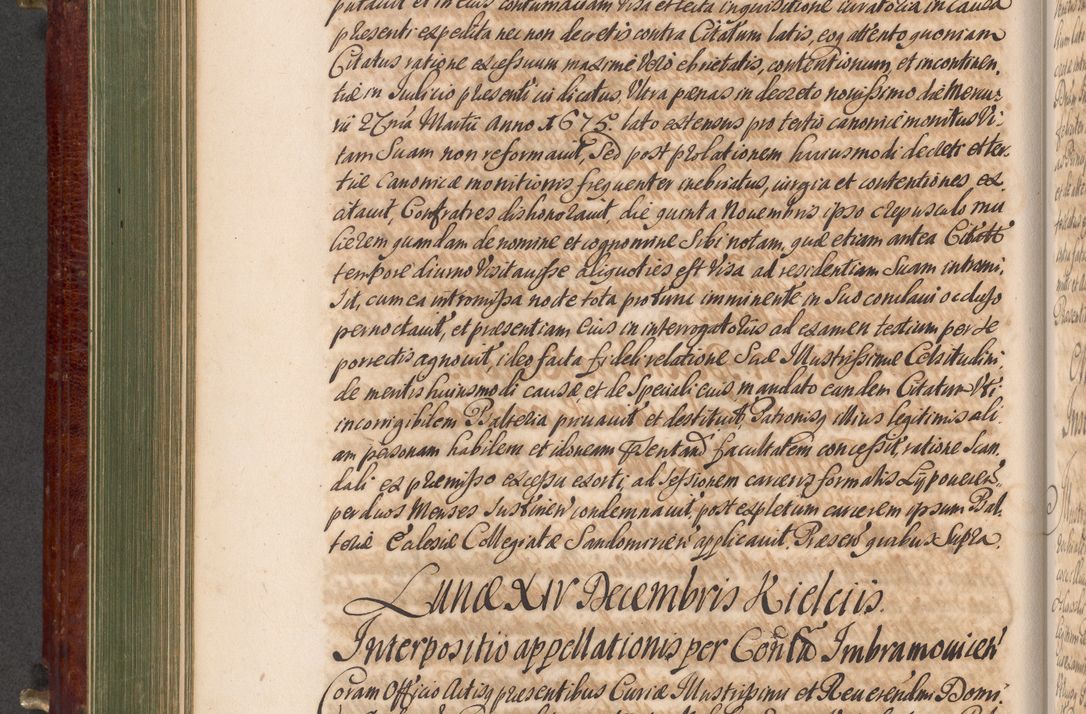 putavit et in eius contumaciam visa et lecta inquisitione curatoria in causa
præsenti expedita nec non decretis contra Citatum latis, eoq attento quoniam
Citatus ratione excessuum maxime vero ebrietatis, contentionum, et incontinen,
tiæ in Iudicio præsenti iudicatus, Ultra pænas in decreto novissimo die Mercu,
rii 27 ma Martii Anno 1675. lato extensus pro tertio canonice monitus Vi,
tam Suam non reformavit, Sed post prolationem huiusmodi decreti et ter,
tiæ Canonicæ monitionis frequenter inebriatus, iurgia et contentiones ex,
citavit, Confratres dishonoravit, die quinta Novembris ipso crepusculo mu
lierem quandam de nomine et cognomine Sibi notam, quæ etiam antea Citatū
tempore diurno visitavisse aliquoties est visa ad residentiam Suam intromi,
sit, cum ea intromissa nocte tota pro tunc imminente in Suo conclavi occluso
pernoctavit, et præsentiam Eius in interrogatoriis ad examen testium per Se
porrectis agnovit, ideo facta fideli relatione Suæ Illustrissimæ Celsitudini
de meritis huiusmodi causæ et de Speciali eius mandato eundem Citatum Uti
incorrigibilem Psalteria privavit et destituit, Patronisq illius legitimis ali,
am personam habilem et idoneam Præsentand facultatem concessit, ratione Scan,
dali ex præmisso excessu exorti, ad sessionem carceris formalis Lypovecien,
per duos Menses Sustinen condemnavit, post expletum carcerem ipsum Psal,
teriæ Ecclesiæ Collegiatæ Sandomirien applicavit. Præsen quibus Supra.
Lunæ XIV Decembris Kielciis.
Interpositio appellationis per Contā Imbramovicen
Coram Officio Actisq præsentibus Curiæ Illustrissimi et Reverendmi Domi,